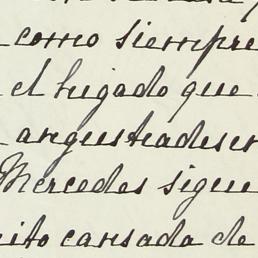 como siempre
el higado que
angustiadesen
Mercedes sigue
ito cansada de